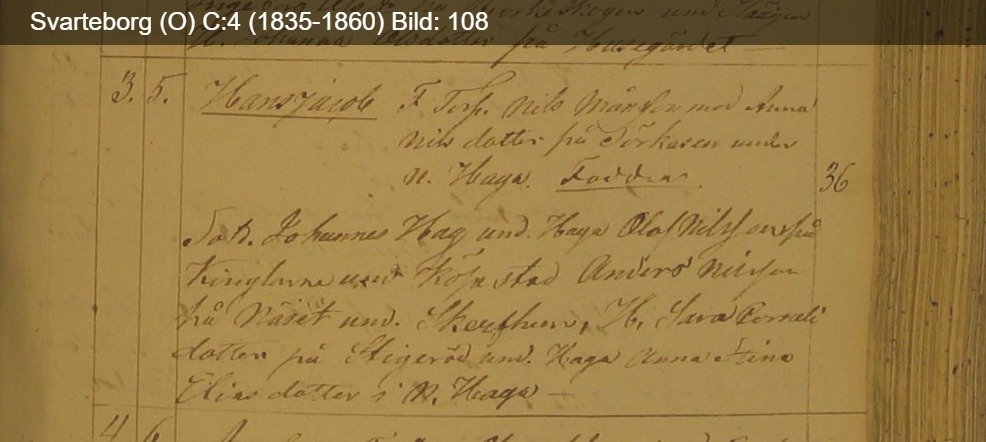 Svarteborg (O) C:4 (1835-1860) Bild: 108
på Husegärdet
3. 5. Hans Jacob F Torp. Nils Månsson mod Anna
Nils dotter på Törkasen under
N. Haga. Faddrar. 36
Johannes Hag und. Haga Olof Nilsson på
und Köpstad Anders Nilsson
på Näset und. H. Sara Corneli
dotter på Stigeröd und. Haga Anna Stina
Elias dotter i N. Haga
4 6.